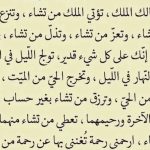 الك الملك ، تؤتي الملك من تشاء ، وتنزع
شاء ، وتعزّ من تشاء ، وتذلّ من تشاء ،
إنّك على كل شيء قدير ، تولج اللّيل في
النّهار في اللّيل ، وتخرج الحي من الميّت ،
من الحيّ ، وترزق من تشاء بغير حساب
الآخرة ورحيمهما ، تعطي من تشاء منهما
شاء ، ارحمني رحمة تُغنني بها عن رحمة من